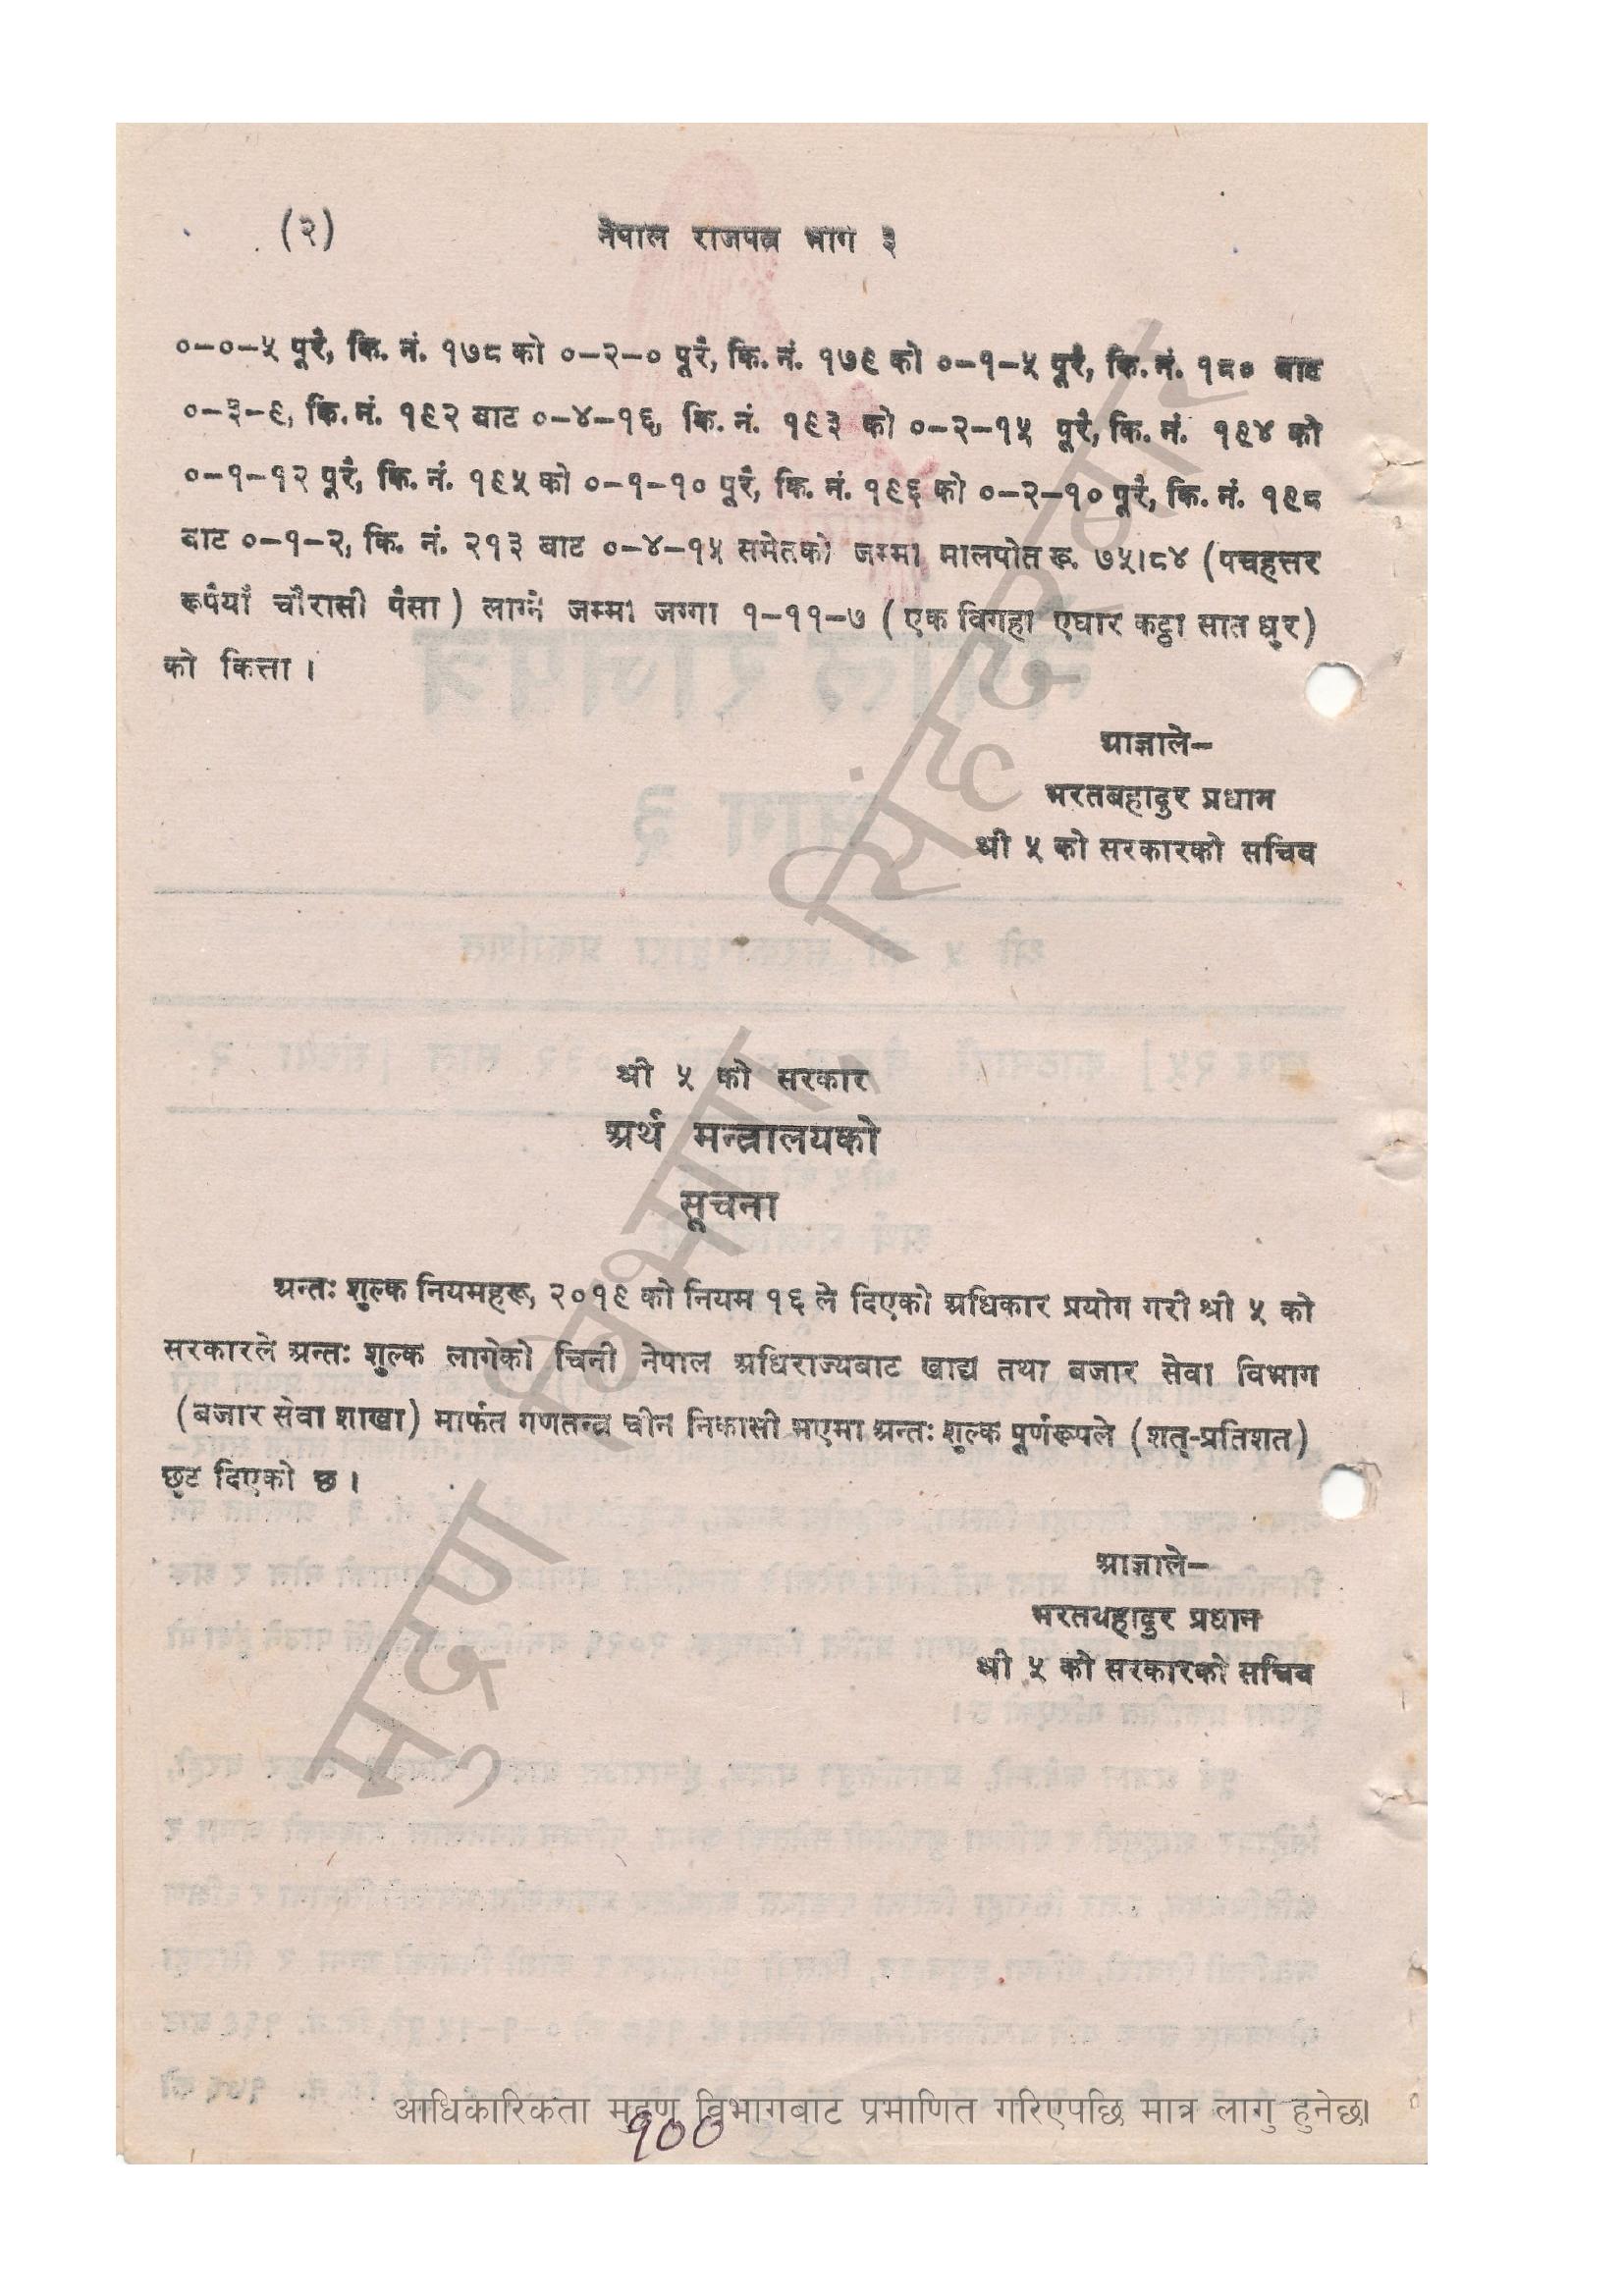 (२) नेपाल राजपत्र भाग ३
०-०-५ पूरै, कि. नं. १७८ को ०-२-० पूरै, कि. नं. १७९ को ०-१-५ पूरै, कि. नं. १८० बाट
०-३-९, कि. नं. १९२ बाट ०-४-१६, कि. नं. १९३ को ०-२-१५ पूरै, कि. नं. १९४ को
०-१-१२ पूरै, कि. नं. १९५ को ०-१-१० पूरै, कि. नं. १९६ को ०-२-१० पूरै, कि. नं. १९८
बाट ०-१-२, कि. नं. २१३ बाट ०-४-१५ समेतको जम्मा मालपोत रू. ७५।८४ (पचहत्तर
रूपैयाँ चौरासी पैसा) लाग्ने जम्मा जग्गा १-११-७ (एक विगहा एघार कट्ठा सात धुर)
को कित्ता ।
आज्ञाले-
भरतबहादुर प्रधान
श्री ५ को सरकारको सचिव
श्री ५ को सरकार
अर्थ मन्त्रालयको
सूचना
अन्तः शुल्क नियमहरू, २०१९ को नियम १६ ले दिएको अधिकार प्रयोग गरी श्री ५ को
सरकारले अन्तः शुल्क लागेको चिनी नेपाल अधिराज्यबाट खाद्य तथा बजार सेवा विभाग
(बजार सेवा शाखा) मार्फत गणतन्त्र चीन निकासी भएमा अन्तः शुल्क पूर्णरूपले (शत्-प्रतिशत)
छुट दिएको छ ।
आज्ञाले-
भरतबहादुर प्रधान
श्री ५ को सरकारको सचिव
मुद्रण विभाग, सिंहदरबार
आधिकारिकता मुद्रण विभागबाट प्रमाणित गरिएपछि मात्र लागु हुनेछ।
१००